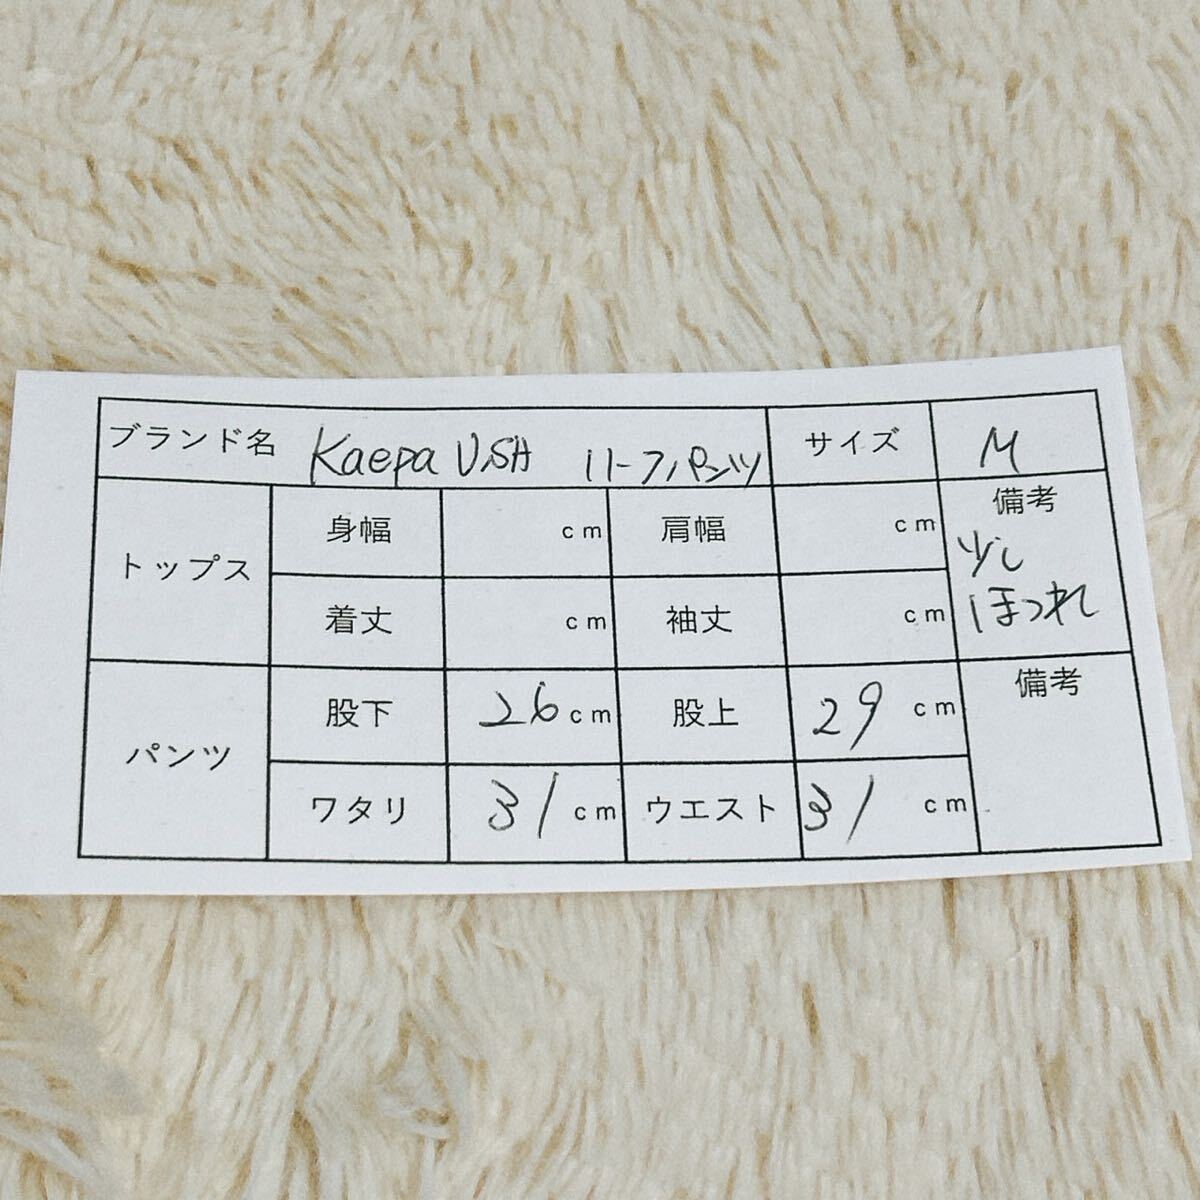 ブランド名 Kaepa USA ハーフパンツ サイズ M
トップス 身幅 cm 肩幅 cm 備考
少し
ほつれ
着丈 cm 袖丈 cm
パンツ 股下 26 cm 股上 29 cm 備考
ワタリ 31 cm ウエスト 31 cm